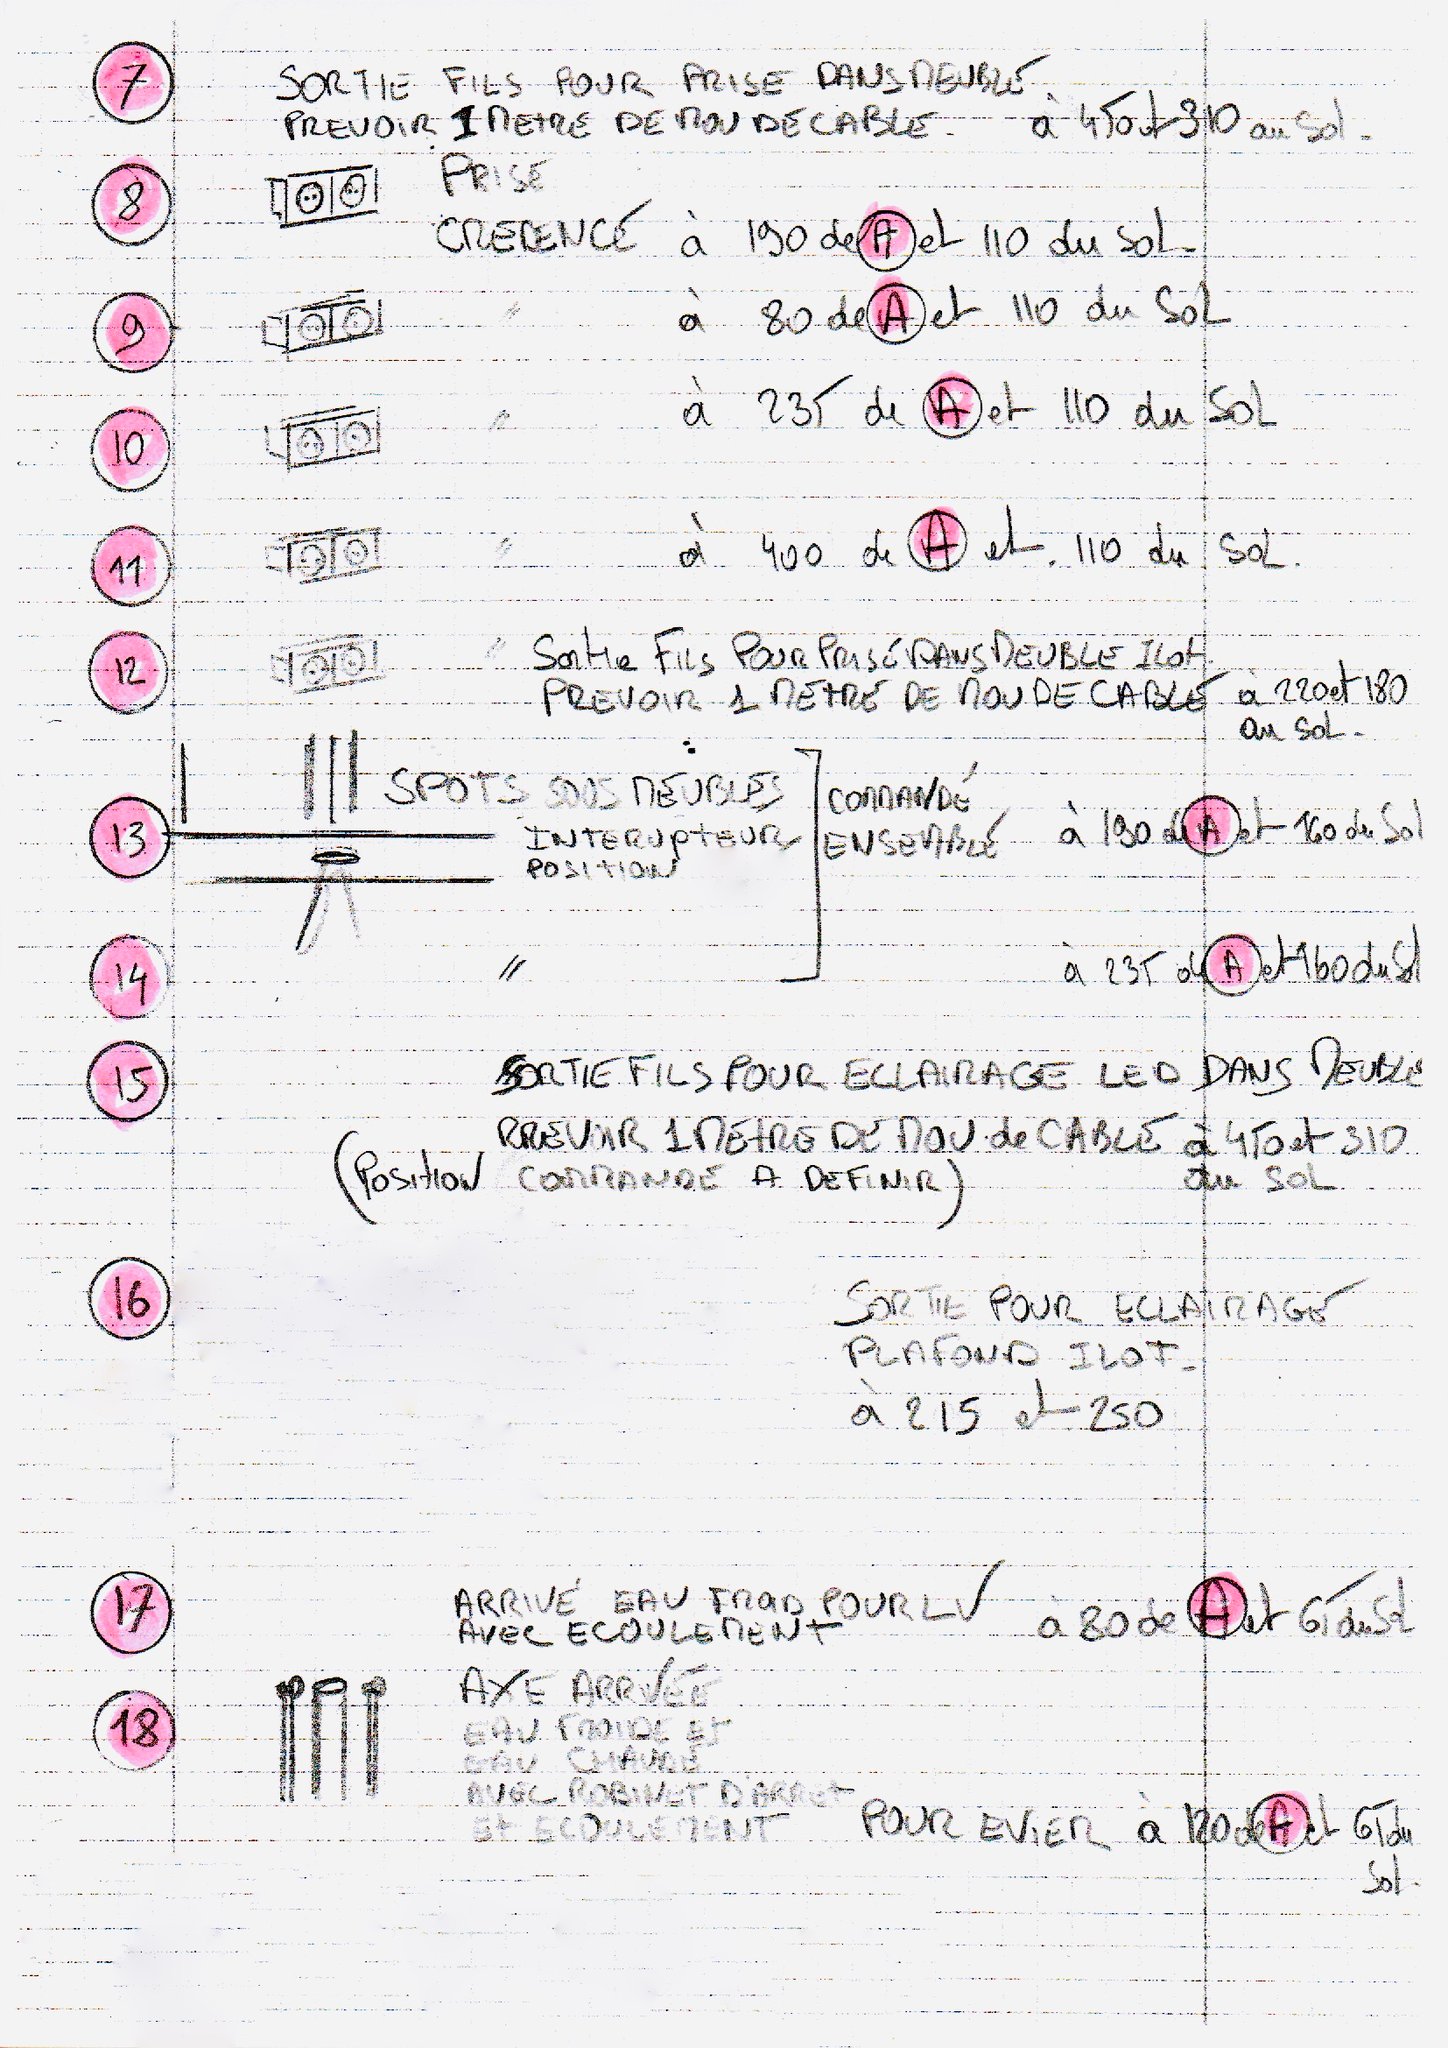 7 SORTIE FILS POUR PRISE DANS MEUBLE
PREVOIR 1 METRE DE MOU DE CABLE. à 450 et 310 au sol.
8 PRISE
CREDENCE à 190 de A et 110 du SOL
9 " à 80 de A et 110 du SOL
10 " à 235 de A et 110 du SOL
11 " à 400 de A et. 110 du SOL.
12 " Sortie FILS POUR PRISE DANS MEUBLE ILot
PREVOIR 1 METRE DE MOU DE CABLE à 220 et 180
au SOL.
13 SPOTS SOUS MEUBLES COMMANDE
INTERUPTEUR ENSEMBLE à 190 de A et 160 du Sol
POSITION
14 " à 235 de A et 160 du Sol
15 SORTIE FILS POUR ECLAIRAGE LED DANS MEUBLE
PREVOIR 1 METRE DE MOU de CABLE à 450 et 310
(POSITION COMMANDE A DEFINIR) au SOL
16 SORTIE POUR ECLAIRAGE
PLAFOND ILOT
à 215 et 250
17 ARRIVÉ EAU FROID POUR LV à 80 de A et 65 du Sol
AVEC ECOULEMENT
18 AXE ARRIVÉE
EAU FROIDE ET
EAU CHAUDE
AVEC ROBINET D'ARRET
ET ECOULEMENT POUR EVIER à 120 de A et 65 du
Sol.